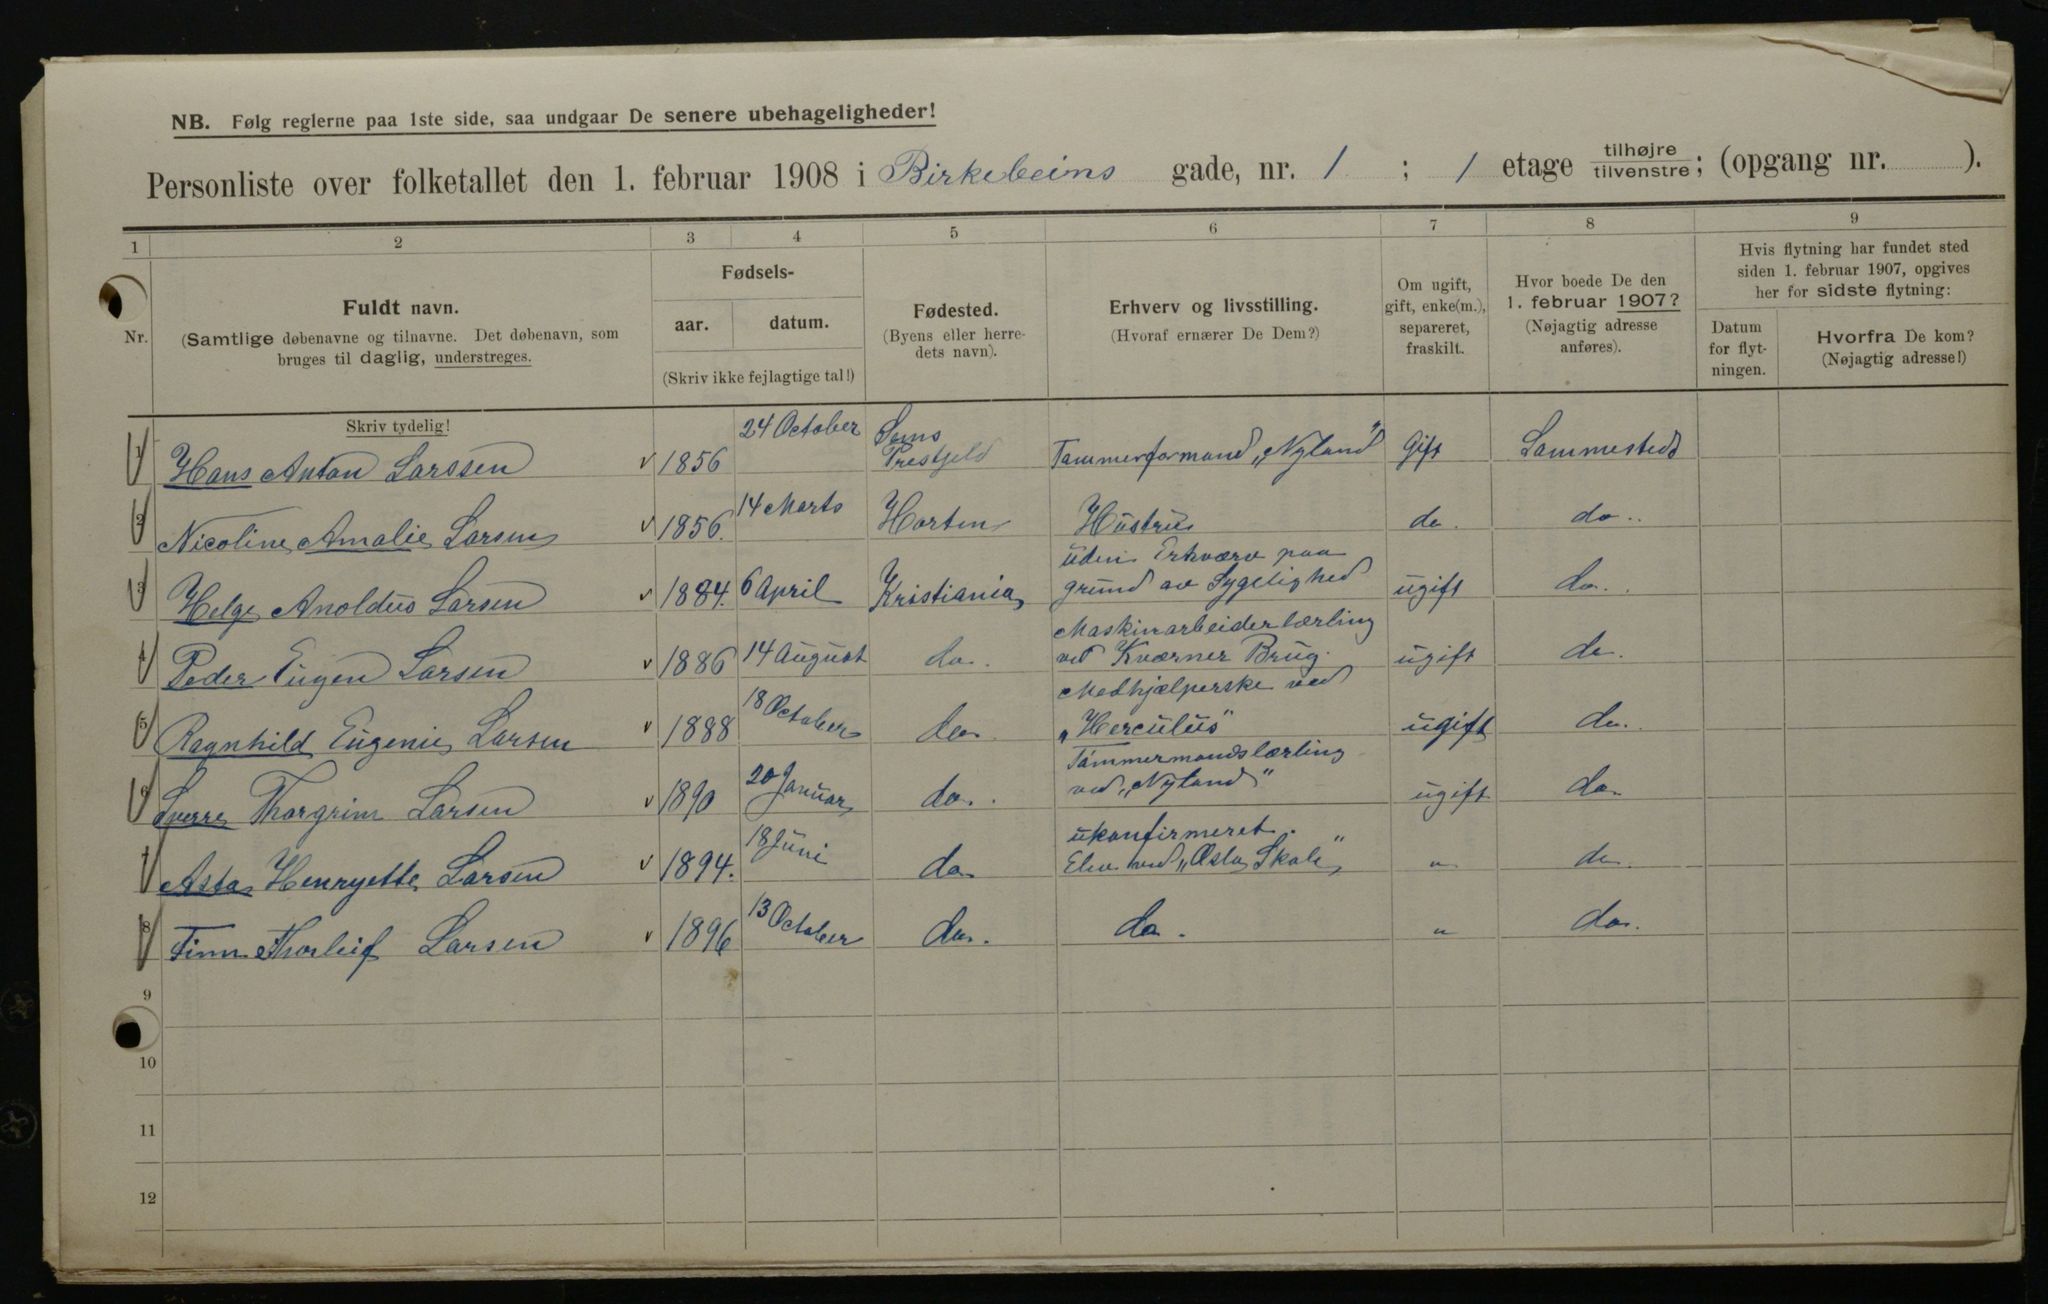 NB. Følg reglerne paa 1ste side, saa undgaar De senere ubehageligheder!
Personliste over folketallet den 1. februar 1908 i Birkebeins gade, nr. 1 ; 1 etage tilhøjre/tilvenstre; (opgang nr. ).
1 2 3 4 5 6 7 8 9
Nr.
Fuldt navn.
(Samtlige døbenavne og tilnavne. Det døbenavn, som
bruges til daglig, understreges.
Skriv tydelig!
Fødsels-
aar. datum.
(Skriv ikke fejlagtige tal!)
Fødested.
(Byens eller herre-
dets navn).
Erhverv og livsstilling.
(Hvoraf ernærer De Dem?)
Om ugift,
gift, enke(m.),
separeret,
fraskilt.
Hvor boede De den
1. februar 1907?
(Nøjagtig adresse
anføres).
Hvis flytning har fundet sted
siden 1. februar 1907, opgives
her for sidste flytning:
Datum
for flyt-
ningen.
Hvorfra De kom?
(Nøjagtig adresse!)
1 Hans Anton Larssen v 1856 24 October Sems Prestgjeld Tømmerformand „Nyland" Gift Sammesteds
2 Nicoline Amalie Larsen v 1856. 14 Marts Horten Hustru do. do..
3 Helge Anoldus Larsen v 1884. 6 April Kristiania uden Erhværv paa
grund av Sygelighed ugift do.
4 Peder Eugen Larsen v 1886 14 August do. Maskinarbeiderlærling
ved Kværner Brug. ugift do.
5 Ragnhild Eugenie Larsen v 1888 18 October do. Medhjælperske ved
„Herculus" ugift do.
6 Sverre Thorgrim Larsen v 1890 20 Januar do. Tømmermandslærling
ved „Nyland" ugift do.
7 Asta Henryette Larsen v 1894. 18 Juni do. ukonfirmeret.
Elev ved „Oslo Skole" " do.
8 Finn Thorleif Larsen v 1896 13 October do. do. " do.
9
10
11
12